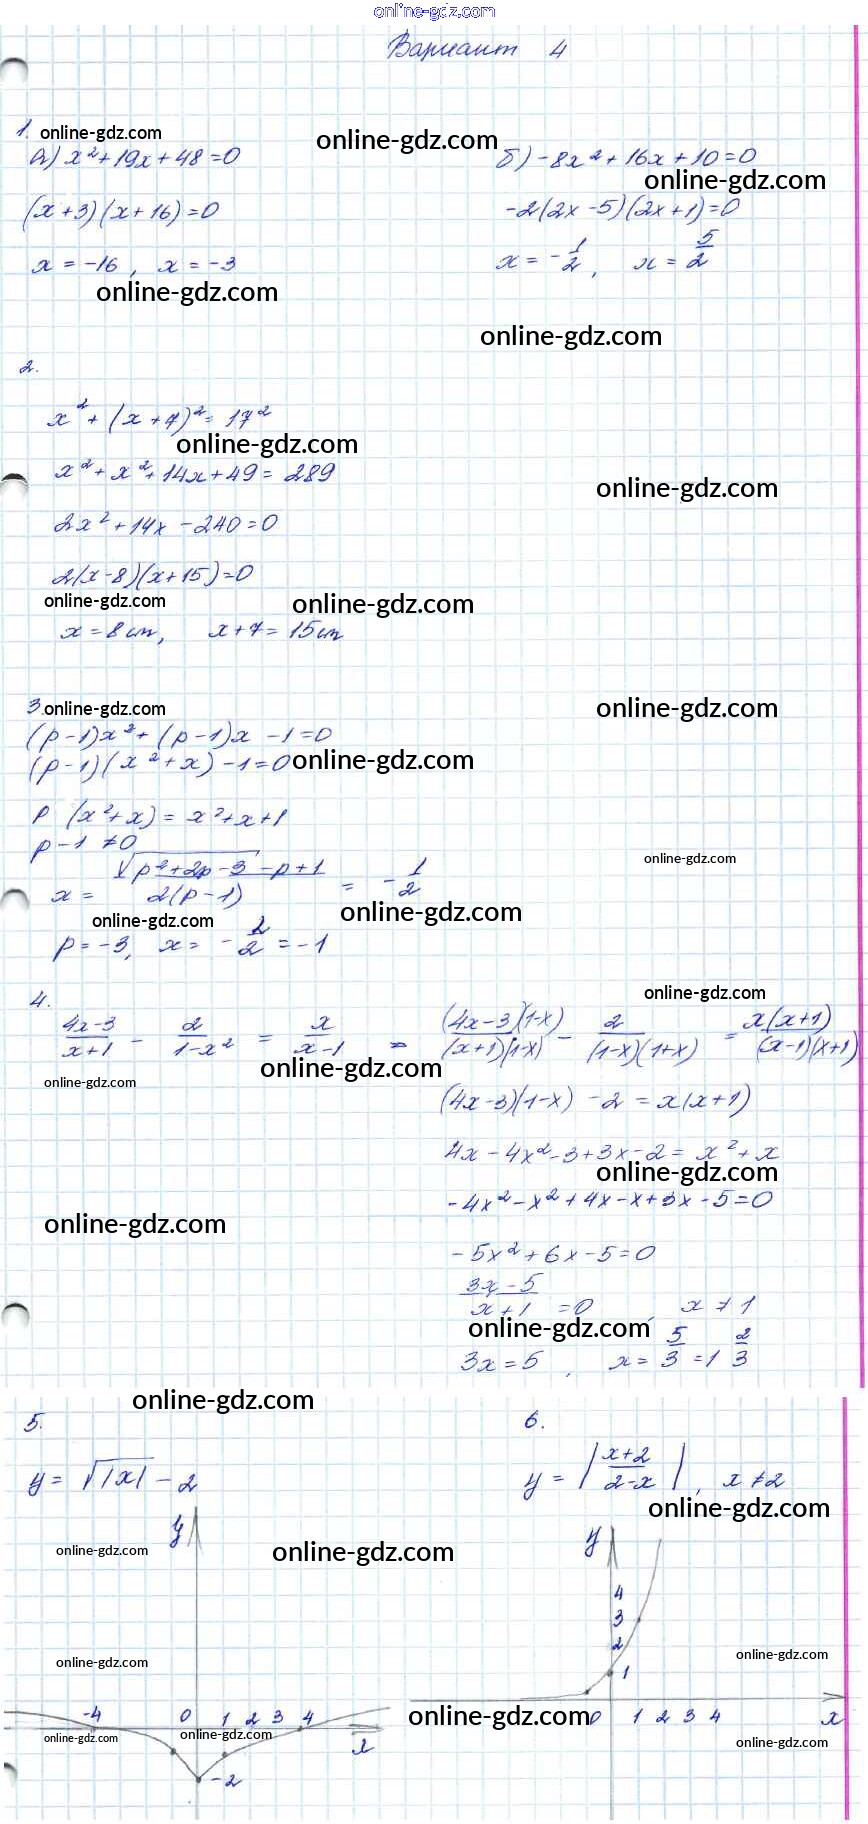 online-gdz.com
Вариант 4
1. online-gdz.com
а) x² + 19x + 48 = 0
online-gdz.com
б) -8x² + 16x + 10 = 0
online-gdz.com
(x + 3)(x + 16) = 0
-2(2x - 5)(2x + 1) = 0
x = -16, x = -3
x = -1/2, x = 5/2
online-gdz.com
online-gdz.com
2.
x² + (x + 7)² = 17²
online-gdz.com
x² + x² + 14x + 49 = 289
online-gdz.com
2x² + 14x - 240 = 0
2(x - 8)(x + 15) = 0
online-gdz.com
online-gdz.com
x = 8 cm, x + 7 = 15 cm
3. online-gdz.com
online-gdz.com
(p - 1)x² + (p - 1)x - 1 = 0
(p - 1)(x² + x) - 1 = 0
online-gdz.com
p (x² + x) = x² + x + 1
p - 1 ≠ 0
online-gdz.com
x = (√(p² + 2p - 3) - p + 1)/(2(p - 1)) = -1/2
online-gdz.com
online-gdz.com
p = -3, x = -2/2 = -1
online-gdz.com
4.
(4x - 3)/(x + 1) - 2/(1 - x²) = x/(x - 1) = ((4x - 3)(1 - x))/((x + 1)(1 - x)) - 2/((1 - x)(1 + x)) = (x(x + 1))/((x - 1)(x + 1))
online-gdz.com
online-gdz.com
(4x - 3)(1 - x) - 2 = x(x + 1)
4x - 4x² - 3 + 3x - 2 = x² + x
online-gdz.com
-4x² - x² + 4x - x + 3x - 5 = 0
online-gdz.com
-5x² + 6x - 5 = 0
(3x - 5)/(x + 1) = 0, x ≠ 1
online-gdz.com
3x = 5, x = 5/3 = 1 2/3
online-gdz.com
5.
y = √|x| - 2
6.
y = |(x + 2)/(2 - x)|, x ≠ 2
online-gdz.com
y
online-gdz.com
online-gdz.com
y
4
3
2
1
online-gdz.com
online-gdz.com
-4 0 1 2 3 4
x
online-gdz.com
online-gdz.com
-2
online-gdz.com
0 1 2 3 4 x
online-gdz.com